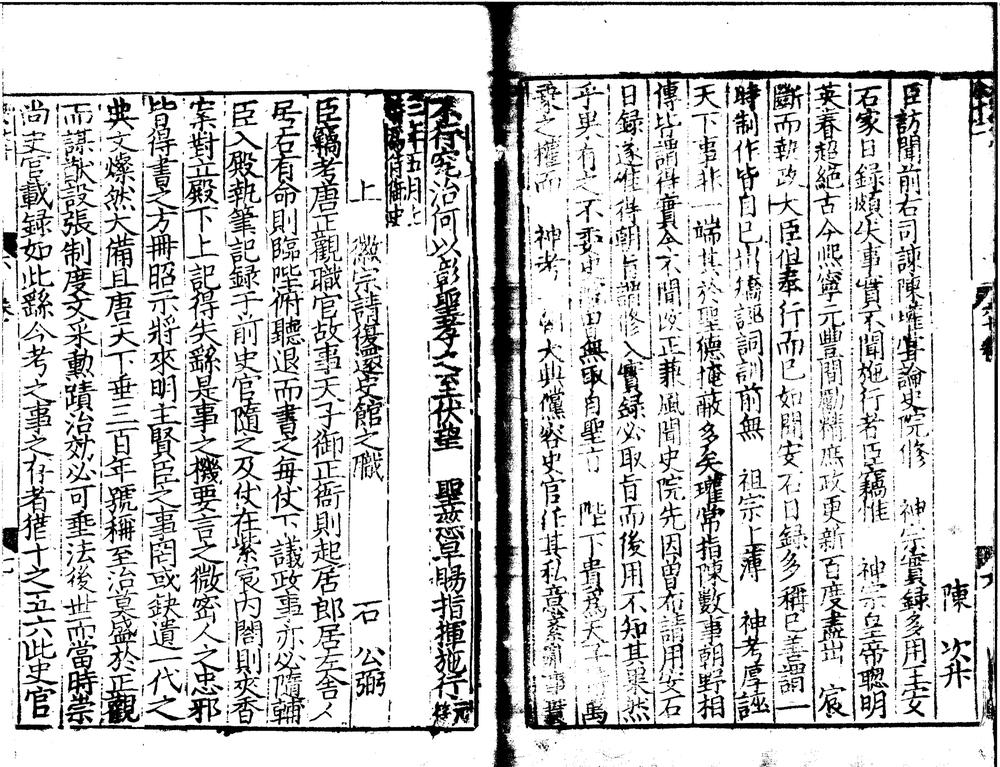 陳次升
臣訪聞前右司諫陳瓘嘗論史院修 神宗實錄多用王安
石家日錄頗失事實不聞施行者臣竊惟 神宗皇帝聰明
英睿超絕古今熙寧元豐間勵精庶政更新百度盡出 宸
斷而執政大臣但奉行而已如聞安石日錄多稱已善謂一
時制作皆自已出矯誣詞訓前無 祖宗上薄 神考厚誣
天下事非一端其於聖德掩蔽多矣瓘常指陳數事朝野相
傳皆謂得實今不聞改正兼風聞史院先因曽布請用安石
日録遂進得朝旨謂修入實録必取旨而後用不知其果然
乎果有之不 無取自聖 陛下貴爲天子 萬
乘之權而 神考 大典儻容史官任其私意 事
不行究治何以彰聖孝之至伏望 聖慈早賜指揮施行元符
三年五月上
時爲侍御史
上 徽宗請復逐史館之職 石公弼
臣竊考唐正觀職官故事天子御正衙則起居郎居左舍人
居右有命則臨陛俯聽退而書之每仗下議政事亦必隨輔
臣入殿執筆記録于前史官隨之及仗在紫宸內閤則夾香
案對立殿下上記得失繇是事之機要言之微密人之忠邪
皆得書之方冊昭示將來明主賢臣之事罔或缺遺一代之
典文燦然大備且唐天下垂三百年號稱至治莫盛於正觀
而謀猷設張制度文采勳蹟治效必可垂法後世而當時崇
尚史官載録如此繇今考之事之存者猶十之五六此史官